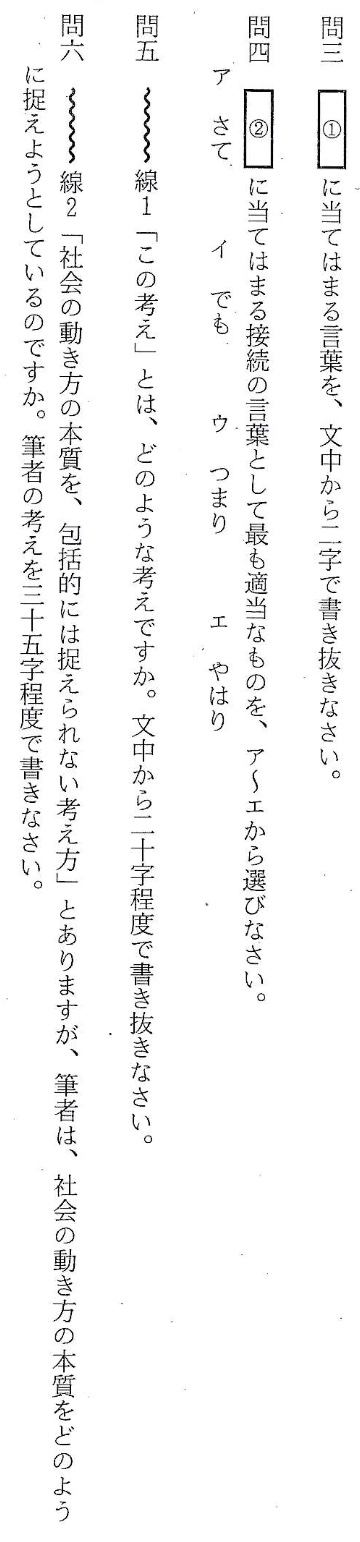 問三 ①に当てはまる言葉を、文中から二字で書き抜きなさい。
問四 ②に当てはまる接続の言葉として最も適当なものを、ア〜エから選びなさい。
ア さて イ でも ウ つまり エ やはり
問五 線1「この考え」とは、どのような考えですか。文中から二十字程度で書き抜きなさい。
問六 線2「社会の動き方の本質を、包括的には捉えられない考え方」とありますが、筆者は、社会の動き方の本質をどのよう
に捉えようとしているのですか。筆者の考えを三十五字程度で書きなさい。